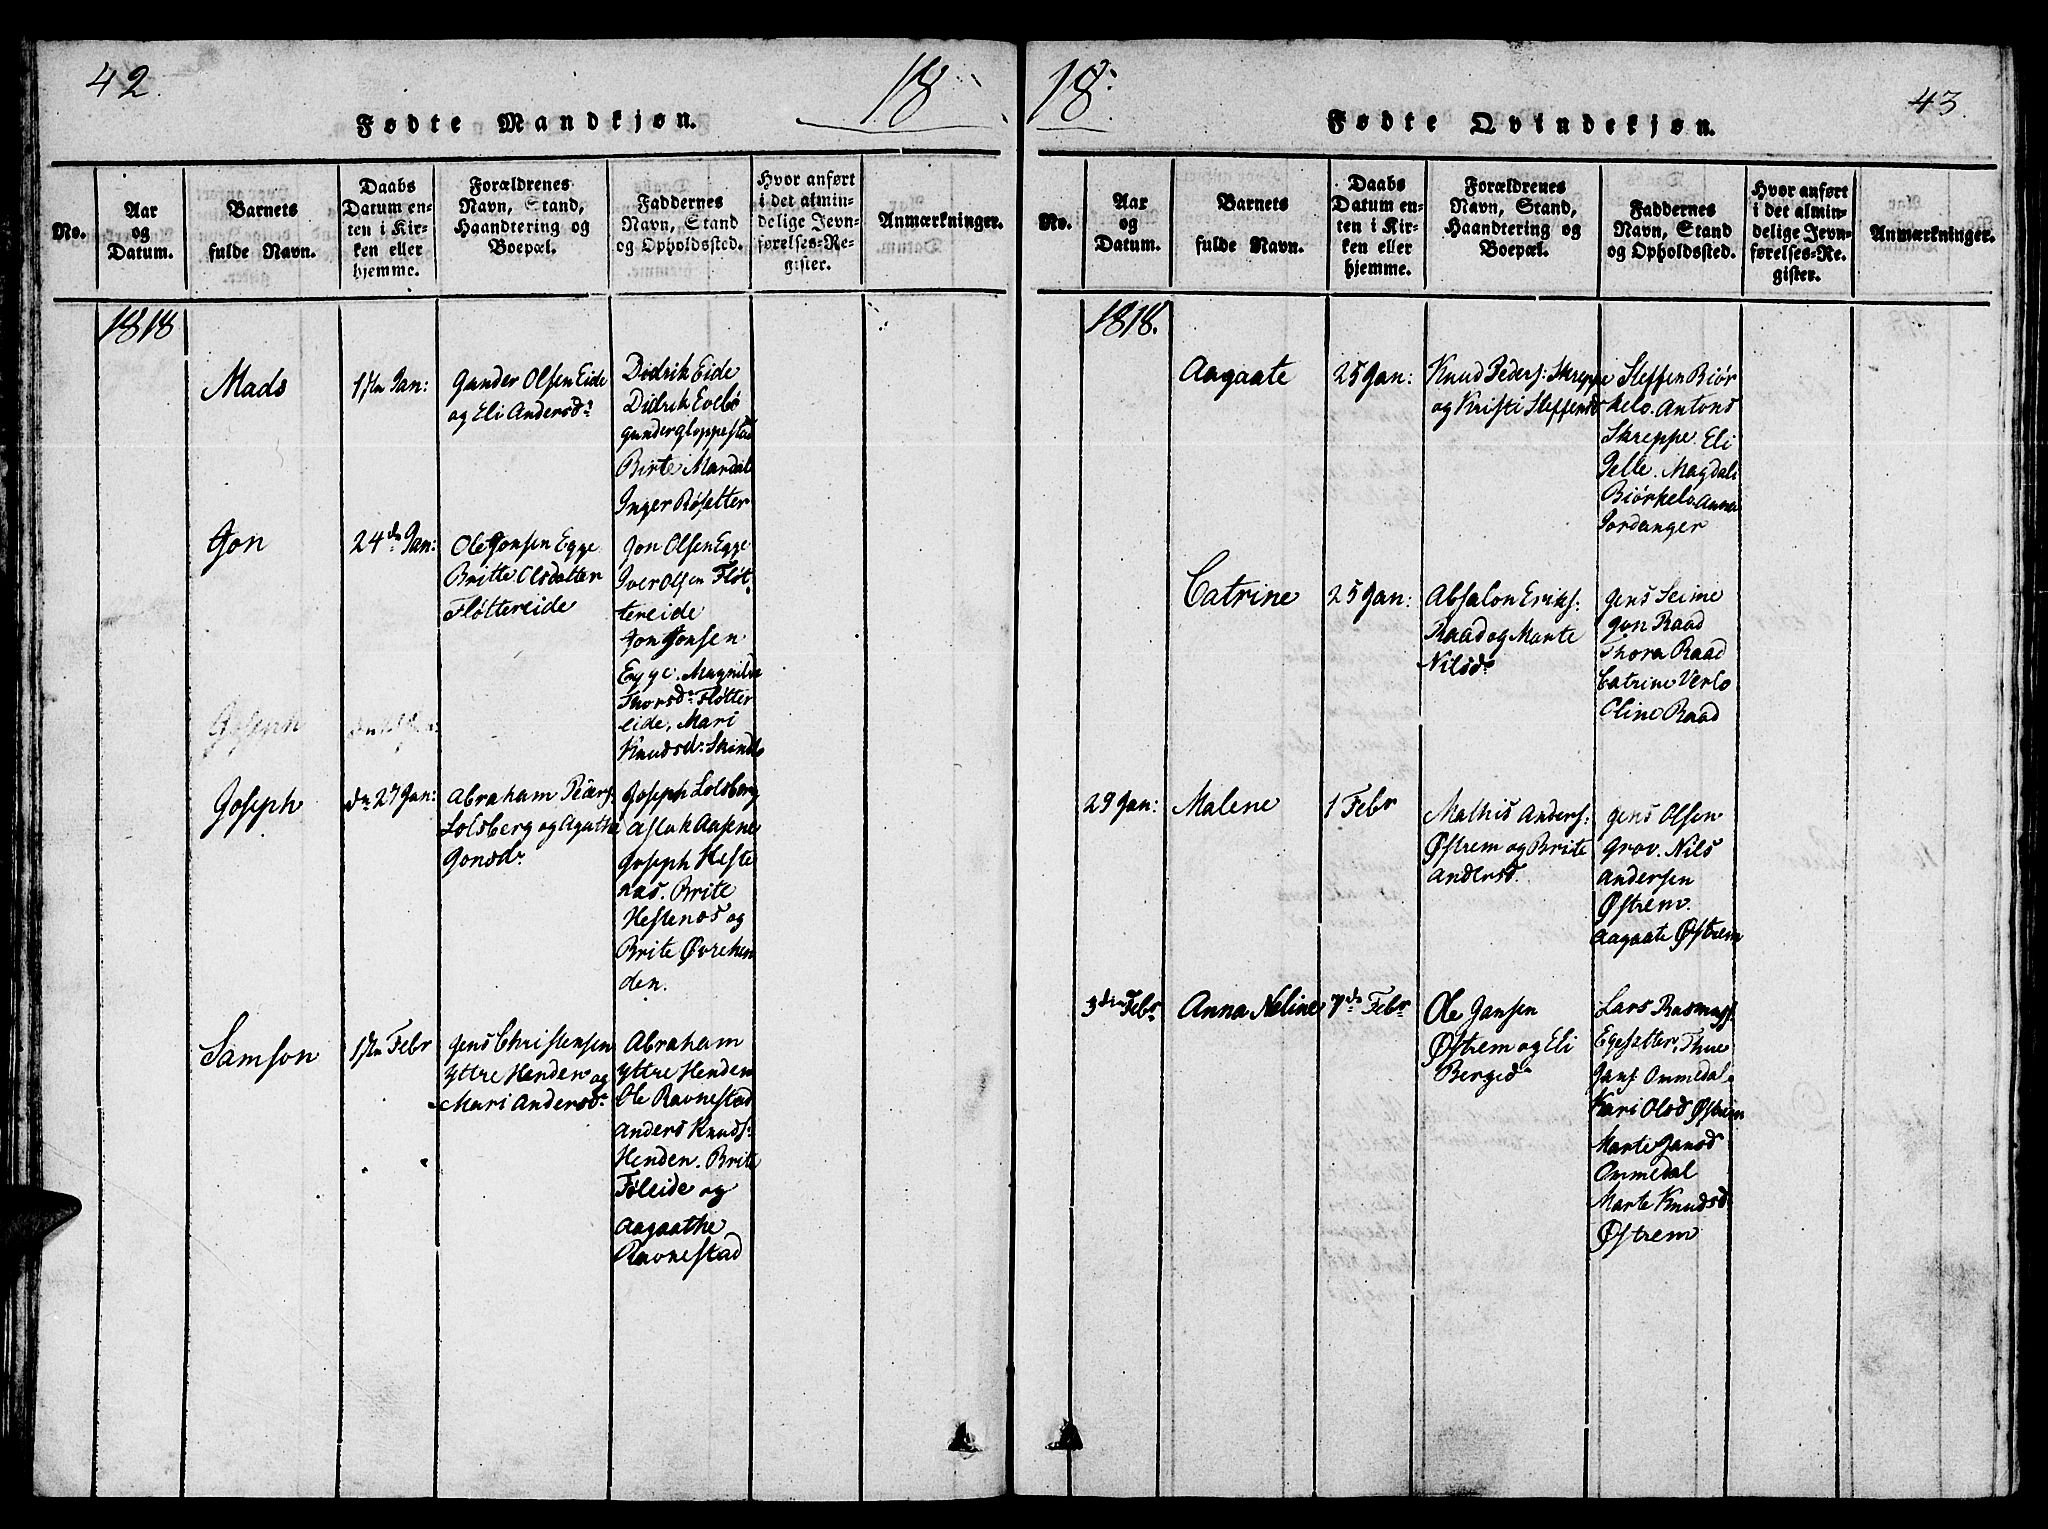 42.
18
Fødte Mandkjøn.
No.
Aar
og
Datum.
Barnets
fulde Navn.
Daabs
Datum en-
ten i Kir-
ken eller
hjemme.
Forældrenes
Navn, Stand,
Haandtering og
Boepæl.
Faddernes
Navn, Stand
og Opholdssted.
Hvor anført
i det almin-
delige Jevn-
førelses-Re-
gister.
Anmærkninger.
1818
Mads
1ste Jan:
Gunder Olsen Eide
og Eli Andersd.
Didrik Eide
Didrik Evebø
gunder gloppestad
Birte Mardal
Inger Røsetter
Jon
24de Jan:
Ole Jonsen Egge
Britte Olsdatter
Fløttereide
Jon Olsen Egge
Iver Olsen Fløt-
tereide
Jon Jonsen
Egge. Magnilde
Thorsdr Fløtter
eide, Mari
Knudsdr Skinlo
Joseph
Joseph
dn 27 Jan:
Abraham Peders:
Solsberg og Agathe
Jonsdr
Joseph Solsberg
Aslak Aasene
Joseph Heste
næs. Brite
Hestenæs og
Brite Øvrehen
den.
Samson
1ste Febr
Jens Christensen
Yttre Henden og
Mari Andersdr
Abraham
Yttre Henden
Ole Ravnestad
Anders Knuds:
Henden. Brite
Føleide og
Aagaathe
Ravnestad
18
43.
Fødte Qvindekjøn.
No.
Aar
og
Datum.
Barnets
fulde Navn.
Daabs
Datum en-
ten i Kir-
ken eller
hjemme.
Forældrenes
Navn, Stand,
Haandtering og
Boepæl.
Faddernes
Navn, Stand
og Opholdssted.
Hvor anført
i det almin-
delige Jevn-
førelses-Re-
gister.
Anmærkninger.
1818.
Aagaate
25 Jan:
Knud Peders: Skreppe
og Kristi Steffensd
Steffen Biør
kelo. Antons
Skreppe. Eli
Pelle. Magdali
Biørkelo Anna
Jordanger
Catrine
25 Jan:
Absalon Eriks:
Raad og Marte
Nilsdr
Jens Seime
Jon Raad
Thora Raad
Catrine Verlo
Eline Raad
29 Jan:
Malene
1 Febr
Mathis Anders:
Østrem og Brite
Andersd.
Jens Olsen
Grov. Nils
Andersen
Østrem.
Aagaate Østrem
3den Febr
Anna Neline
7de Febr
Ole Jansen
Østrem og Eli
Bergedr
Lars Rasmuss.
Egesetter, Thue
Jans. Ommedal.
Kari Olsd Østrem
Marte Jansd
Ommedal
Marte Knudsd.
Østrem